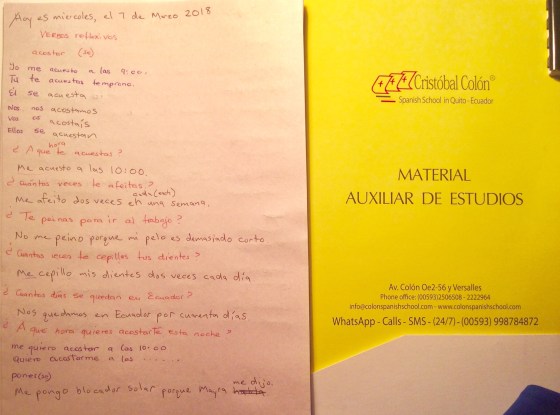 Hoy es miercoles, el 7 de Marzo 2018
Verbos reflexivos
acostar (se)
Yo me acuesto a las 9:00.
Tú te acuestas temprano.
Él se acuesta
Nos nos acostamos
Vos os acostaís
Ellos se acuestan
hora
¿ A que te acuestas ?
Me acuesto a las 10:00.
¿ Cuántas veces te afeitas ?
cada (each)
Me afeito dos veces en una semana.
¿ Te peinas para ir al trabajo ?
No me peino porque mi pelo es demasiado corto
¿ Cuantas veces te cepillas tus dientes ?
Me cepillo mis dientes dos veces cada día.
¿ Cuantos días se quedan en Ecuador ?
Nos quedamos en Ecuador por cuarenta días
¿ A que hora quieres acostarte esta noche ?
me quiero acostar a las 10:00
quiero acostarme a las ......
poner(se)
me dijo.
Me pongo blocador solar porque Mayra
Cristóbal Colón®
Spanish School in Quito - Ecuador
MATERIAL
AUXILIAR DE ESTUDIOS
Av. Colón Oe2-56 y Versalles
Phone office: (00593)2506508 - 2222964
info@colonspanishschool.com - www.colonspanishschool.com
WhatsApp - Calls - SMS - (24/7) - (00593) 998784872